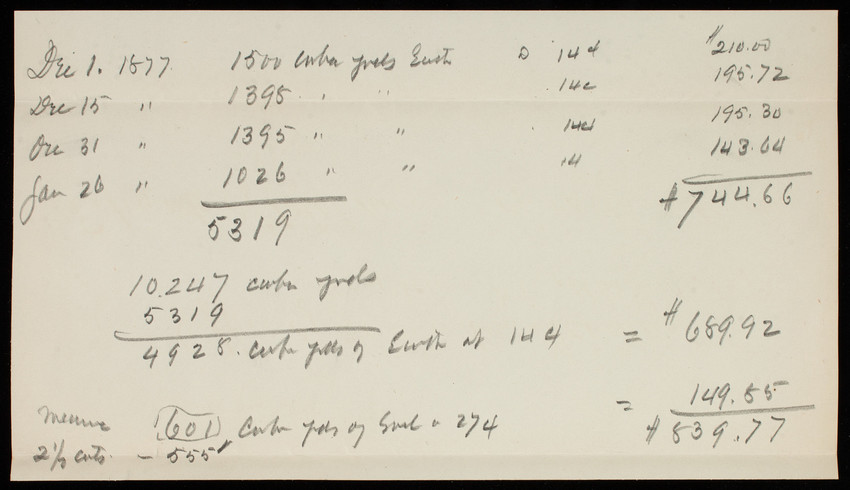 Dec 1. 1877 1500 cube yards Earth @ 14¢ $210.00
Dec 15 " 1398 " " 14c 195.72
Dec 31 " 1395 " " 14¢ 195.30
Jan 26 " 1026 " " 14 143.64
5319 $744.66
10.247 cube yards
5319
4928. cube yards of Earth at 14¢ = $689.92
601 Cube yds of @ 27¢ = 149.85
2 1/2 cuts - 555 $839.77